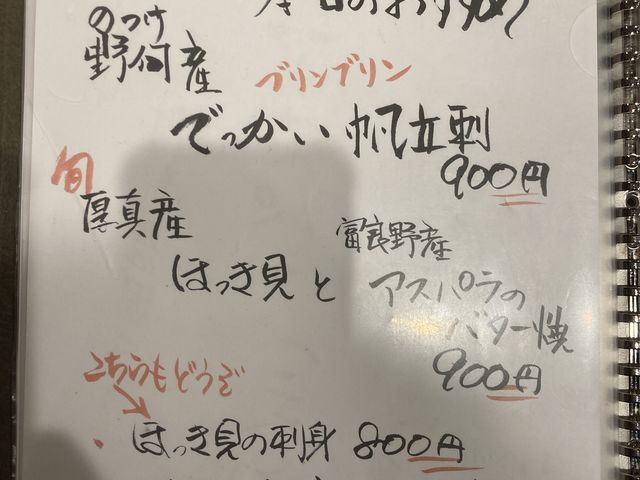 本日のおすすめ
のつけ
野付産
ブリンブリン
でっかい帆立刺
900円
旬
厚真産
富良野産
ほっき貝と アスパラの
バター焼
900円
こちらもどうぞ
・ほっき貝の刺身 800円